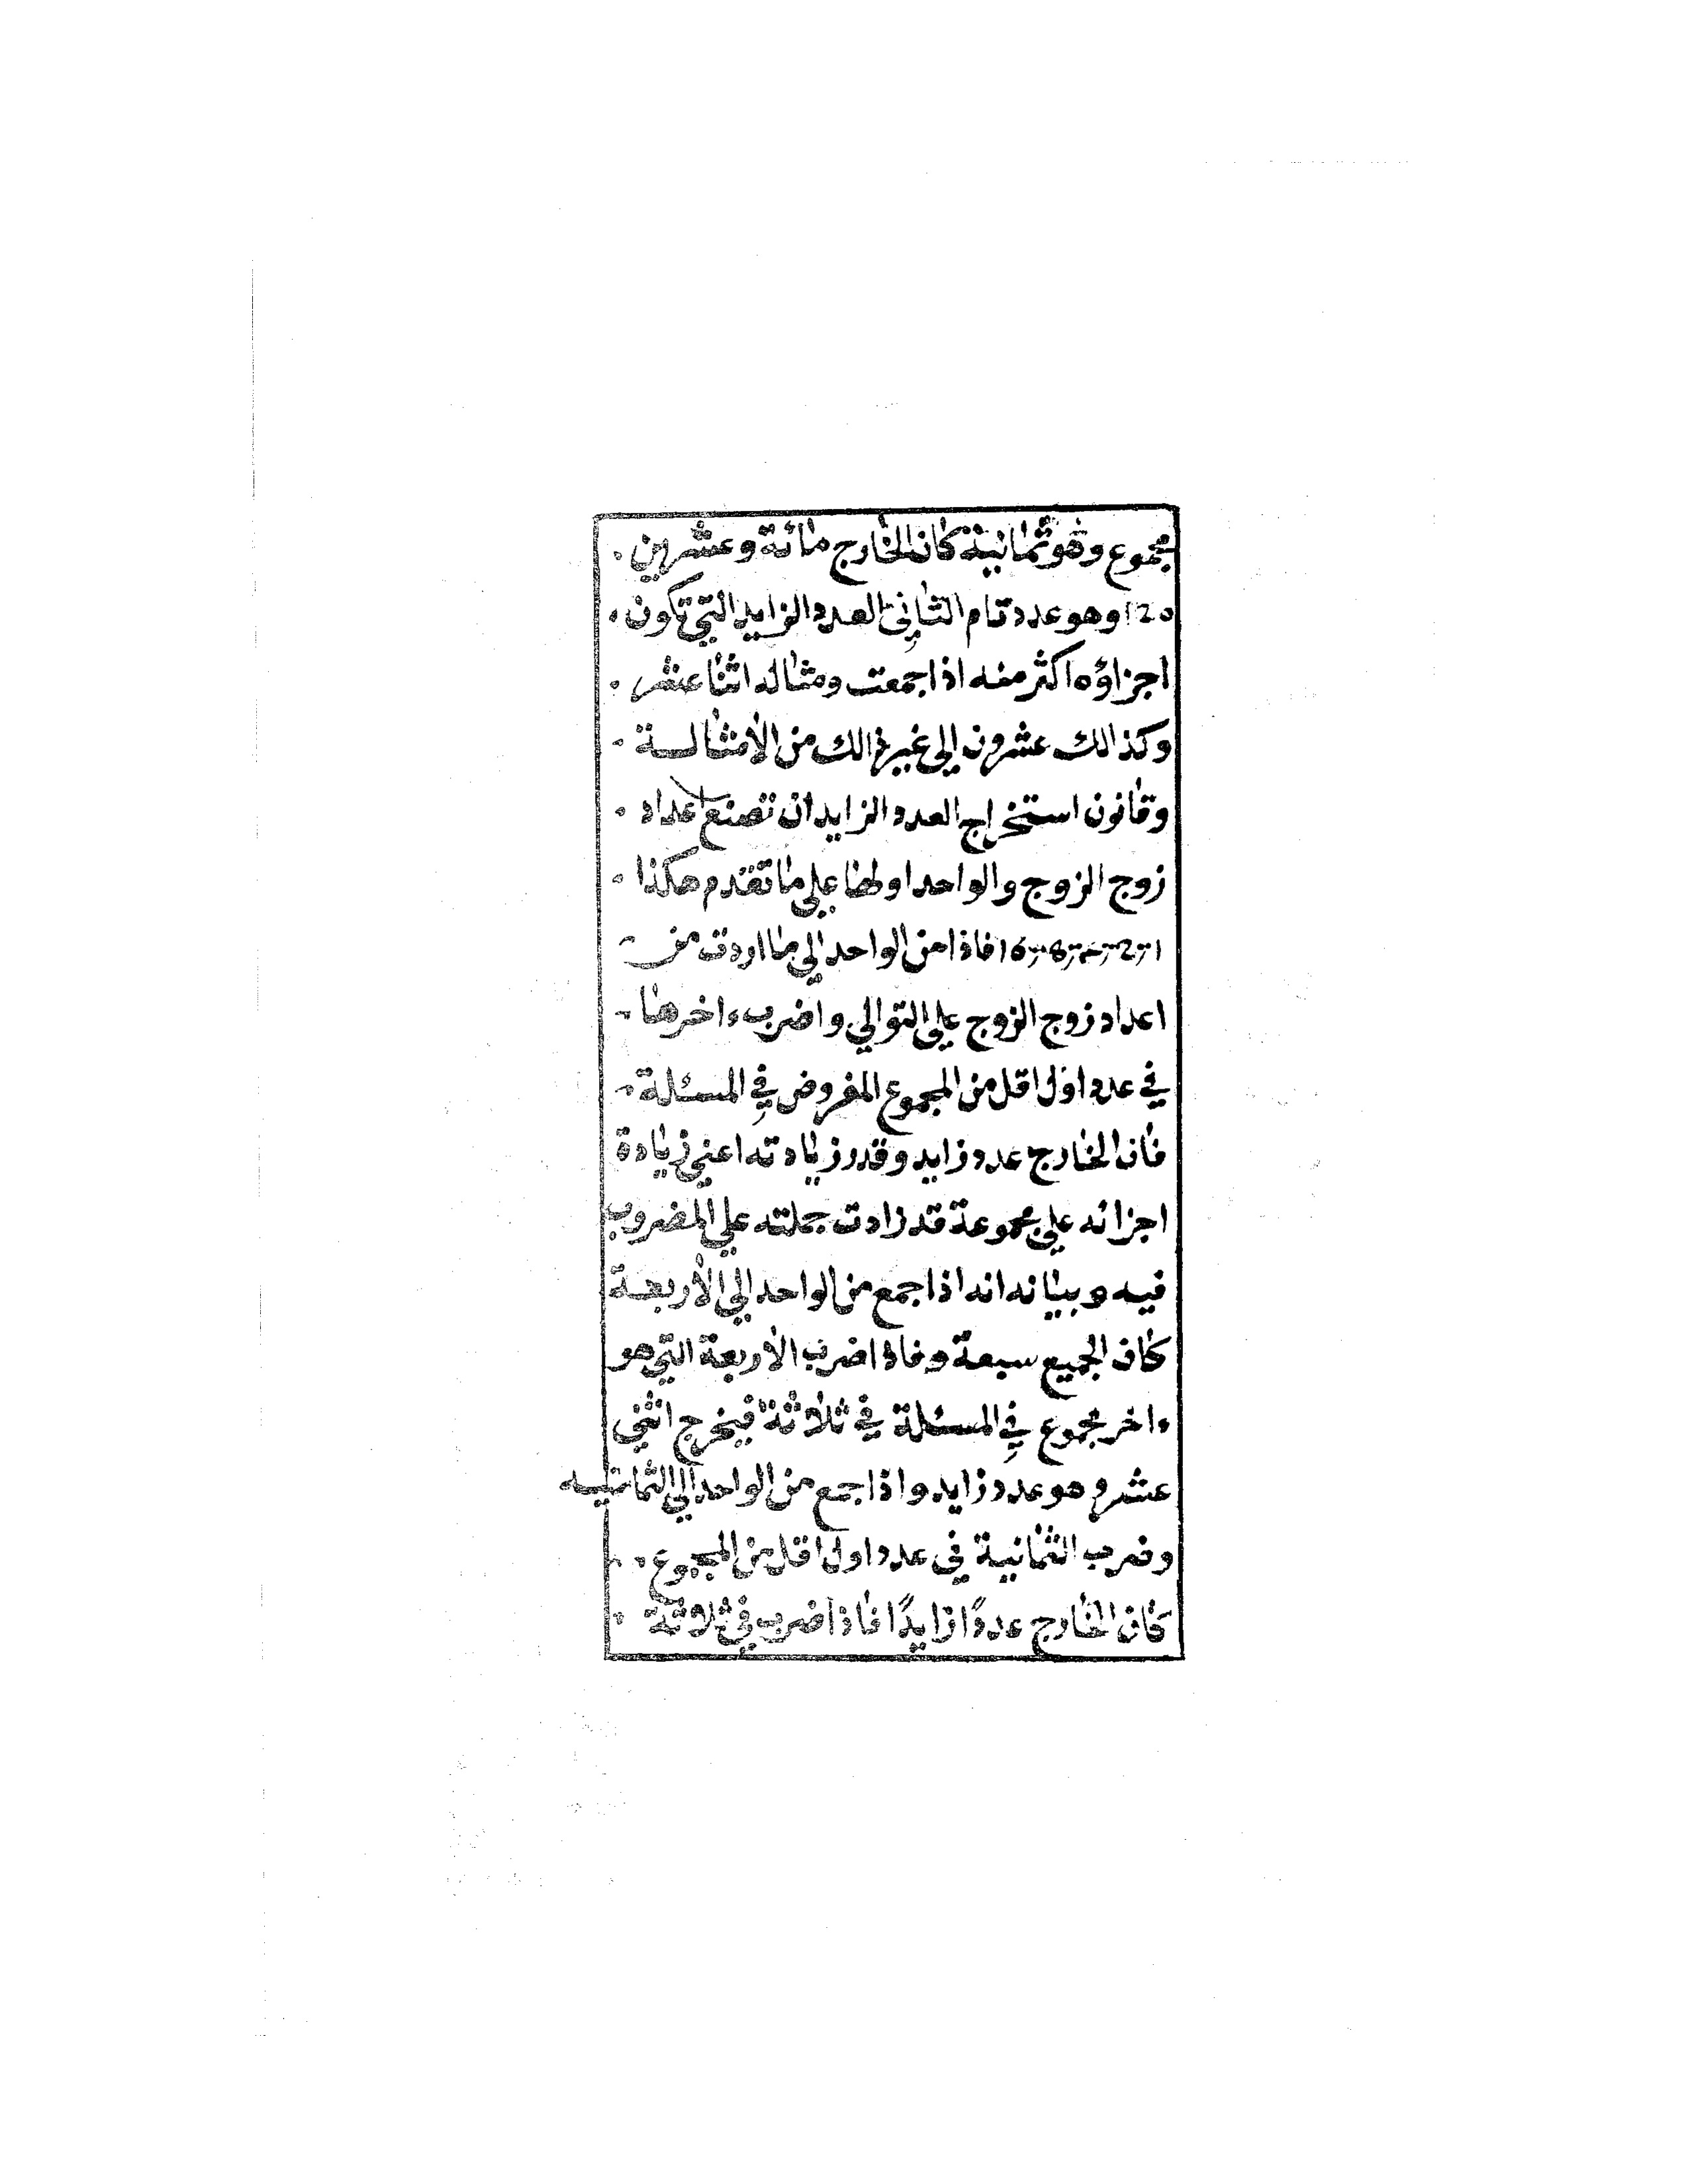 مجموع وهو ثمانية كان الخارج مائة وعشرين.
120 وهو عدد تام الثاني العدد الزايد التي تكون.
اجزاؤه اكثر منه اذا جمعت ومثاله اثنا عشر.
وكذالك عشرون الى غير ذالك من الأمثالة.
وقانون استخراج العدد الزايد ان تصنع اعداد.
زوج الزوج والواحد اولها على ما تقدم هكذا.
فاذا من الواحد الي ما اردت من
اعداد زوج الزوج على التوالي واضرب ءاخرها
في عدد اول اقل من المجموع المفروض في المسئلة
فان الخارج عدد زايد وقدر زيادته اعني زيادة
اجزائه على مجموعة قد زادت جملته علي المضروب
فيه وبيانه انه اذا جمع من الواحد الي الأربعة
كان الجميع سبعة وفاذا اضرب الأربعة التي هو
ءاخر مجموع في المسئلة في ثلاثة فيخرج اثني
عشر وهو عدد زايد واذا جمع من الواحد الي الثمانيه
وضرب الثمانية في عدد اول اقل من المجموع.
كان الخارج عددًا زايدًا فاذا اضرب في ثلاثة